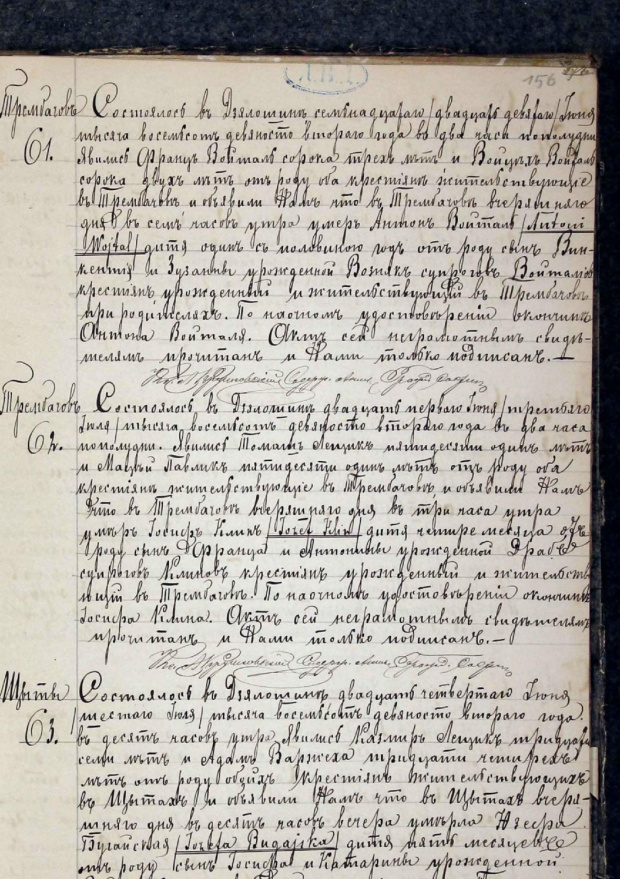 156
Трембачовъ
61.
Состоялось въ Дзялошинѣ семьнадцатаго /двадцать девятаго/ Іюня
тысяча восемьсотъ девяносто втораго года въ два часа пополудни
явились Францъ Войталь сорока трехъ лѣтъ и Войцѣхъ Войталь
сорока двухъ лѣтъ отъ роду оба крестіяне жительствующіе
въ Трембачовѣ и объявили Намъ что въ Трембачовѣ вчерашняго
дня въ семь часовъ утра умеръ Антонъ Войталь /Antoni
Wojtal/ дитя одинъ съ половиною годъ отъ роду сынъ Вин-
кентія и Зузанны урожденной Вознякъ супроговъ Войталовъ
крестіянъ урожденный и жительствующій въ Трембачовѣ
при родителяхъ. По настномъ удостовѣреніи окончины
Антона Войталя. Актъ сей неграмотнымъ свидѣ-
телямъ прочитанъ и Нами только подписанъ.—
Трембачовъ
62.
Состоялось въ Дзялошинѣ двадцать перваго Іюня /третьяго
Іюля/ тысяча восемьсотъ девяносто втораго года въ два часа
пополудни. Явились Томашъ Лещикъ пятидесяти одинъ лѣтъ
и Матвѣй Павликъ пятидесяти одинъ лѣтъ отъ роду оба
крестіяне жительствующіе въ Трембачовѣ и объявили Намъ
что въ Трембачовѣ вчерашняго дня въ три часа утра
умеръ Іосифъ Климъ /Józef Klim/ дитя четыре месяца отъ
роду сынъ Франца и Антонины урожденной Драбъ
супроговъ Климовъ крестіянъ урожденный и жительству-
ющій въ Трембачовѣ. По настномъ удостовѣреніи окончины
Іосифа Клима. Актъ сей неграмотнымъ свидѣтелямъ
прочитанъ и Нами только подписанъ.—
Щыты
63.
Состоялось въ Дзялошинѣ двадцать четвертаго Іюня
/шестаго Іюля/ тысяча восемьсотъ девяносто втораго года
въ десять часовъ утра. Явились Казмиръ Лещикъ тридцати
семи лѣтъ и Адамъ Варжеха тридцати четырехъ
лѣтъ отъ роду обоихъ крестіянъ жительствующихъ
въ Щытахъ и объявили Намъ что въ Щытахъ вчера-
шняго дня въ десять часовъ вечера умерла Юзефа
Бугайская /Józefa Bugajska/ дитя пять месяцевъ
отъ роду сынъ Іосифа и Катарины урожденной